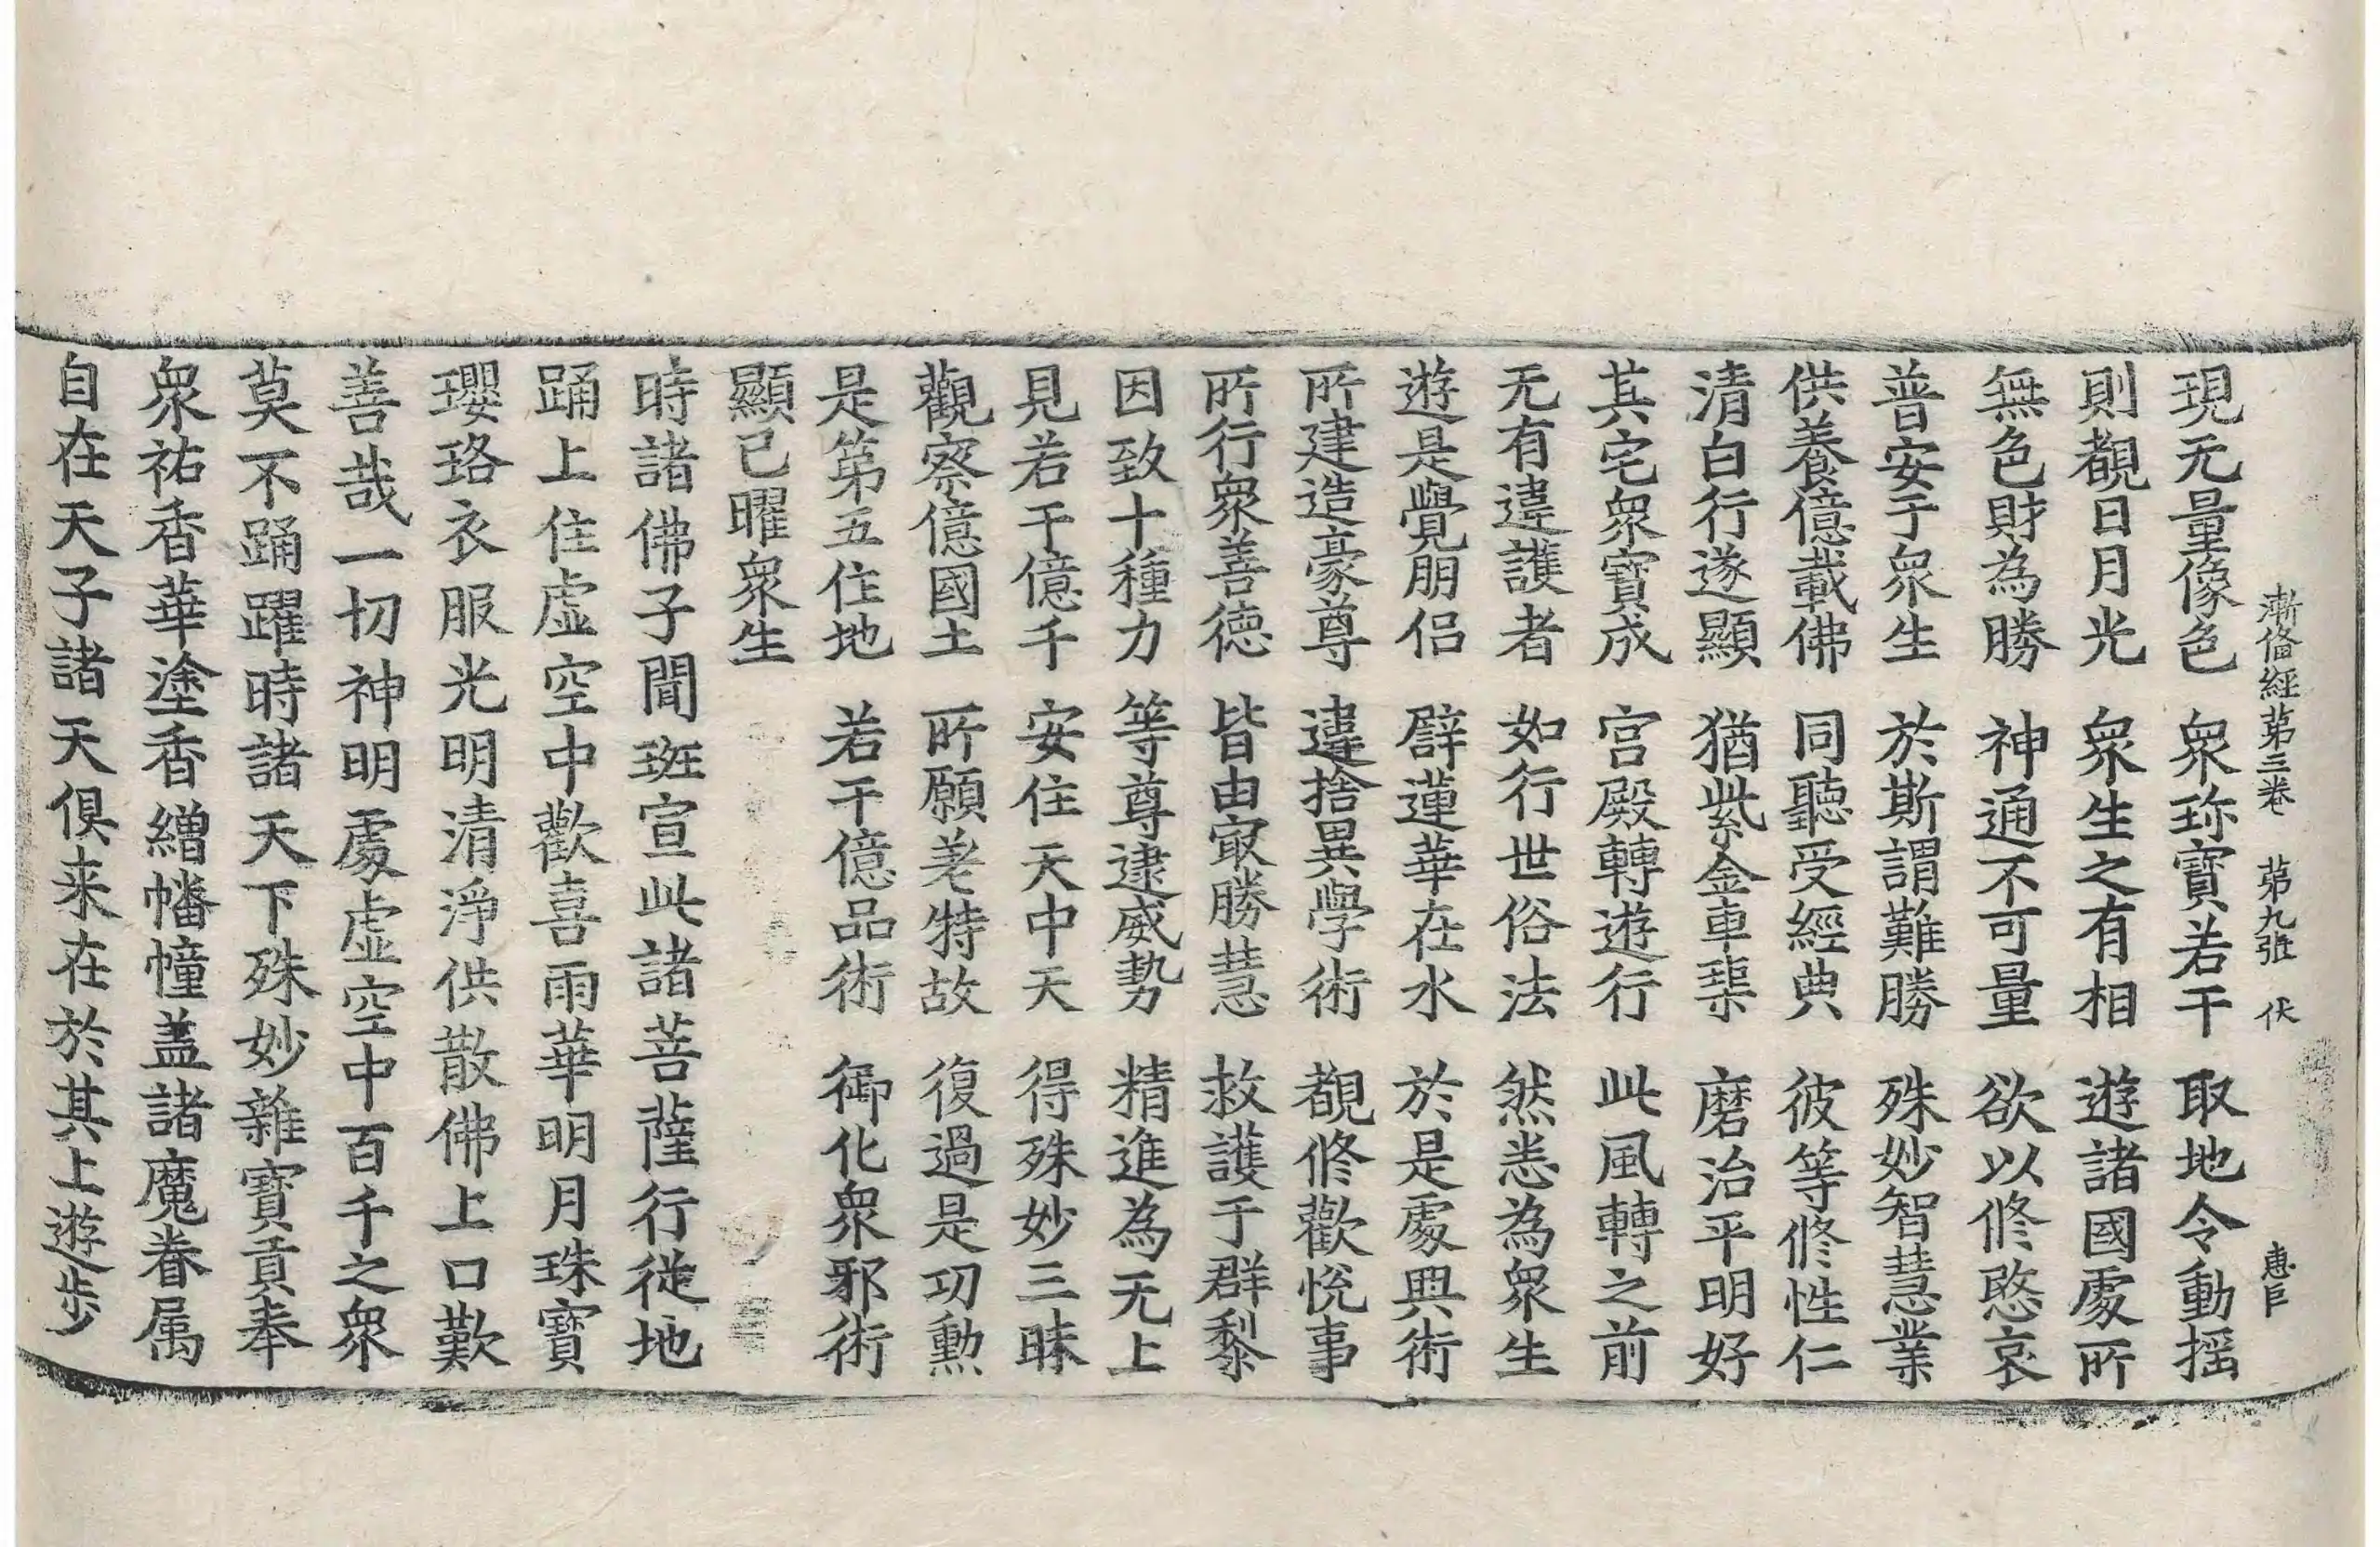 漸俻經第三卷　第九張　伏　惠巨
現无量像色　衆珎寳若干　取地令動摇
則覩日月光　衆生之有相　遊諸國處所
無色財為勝　神通不可量　欲以修愍哀
普安于衆生　於斯謂難勝　殊妙智慧業
供養億載佛　同聽受經典　彼等修性仁
清白行遂顯　猶紫金車璖　磨治平明好
其宅衆寳成　宫殿轉遊行　此風轉之前
无有違護者　如行世俗法　然恚為衆生
遊是覺朋侣　辟蓮華在水　於是處興術
所建造豪尊　違捨異學術　覩修歡悅事
所行衆善德　皆由㝡勝慧　救護于群黎
因致十種力　等尊逮威勢　精進為无上
見若干億千　安住天中天　得殊妙三昧
觀察億國土　所願差特故　復過是功勲
是第五住地　若干億品術　御化衆邪術
顯已曜衆生
時諸佛子聞班宣此諸菩薩行従地
踊上住虚空中歡喜雨華明月珠寳
瓔珞衣服光明清淨供散佛上口歎
善哉一切神明處虚空中百千之衆
莫不踊躍時諸天下殊妙雜寳貢奉
衆祐香華塗香繒幡幢盖諸魔眷属
自在天子諸天俱来在於其上遊步